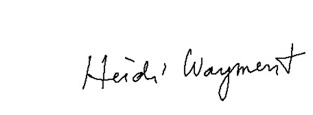 Heidi Wayment